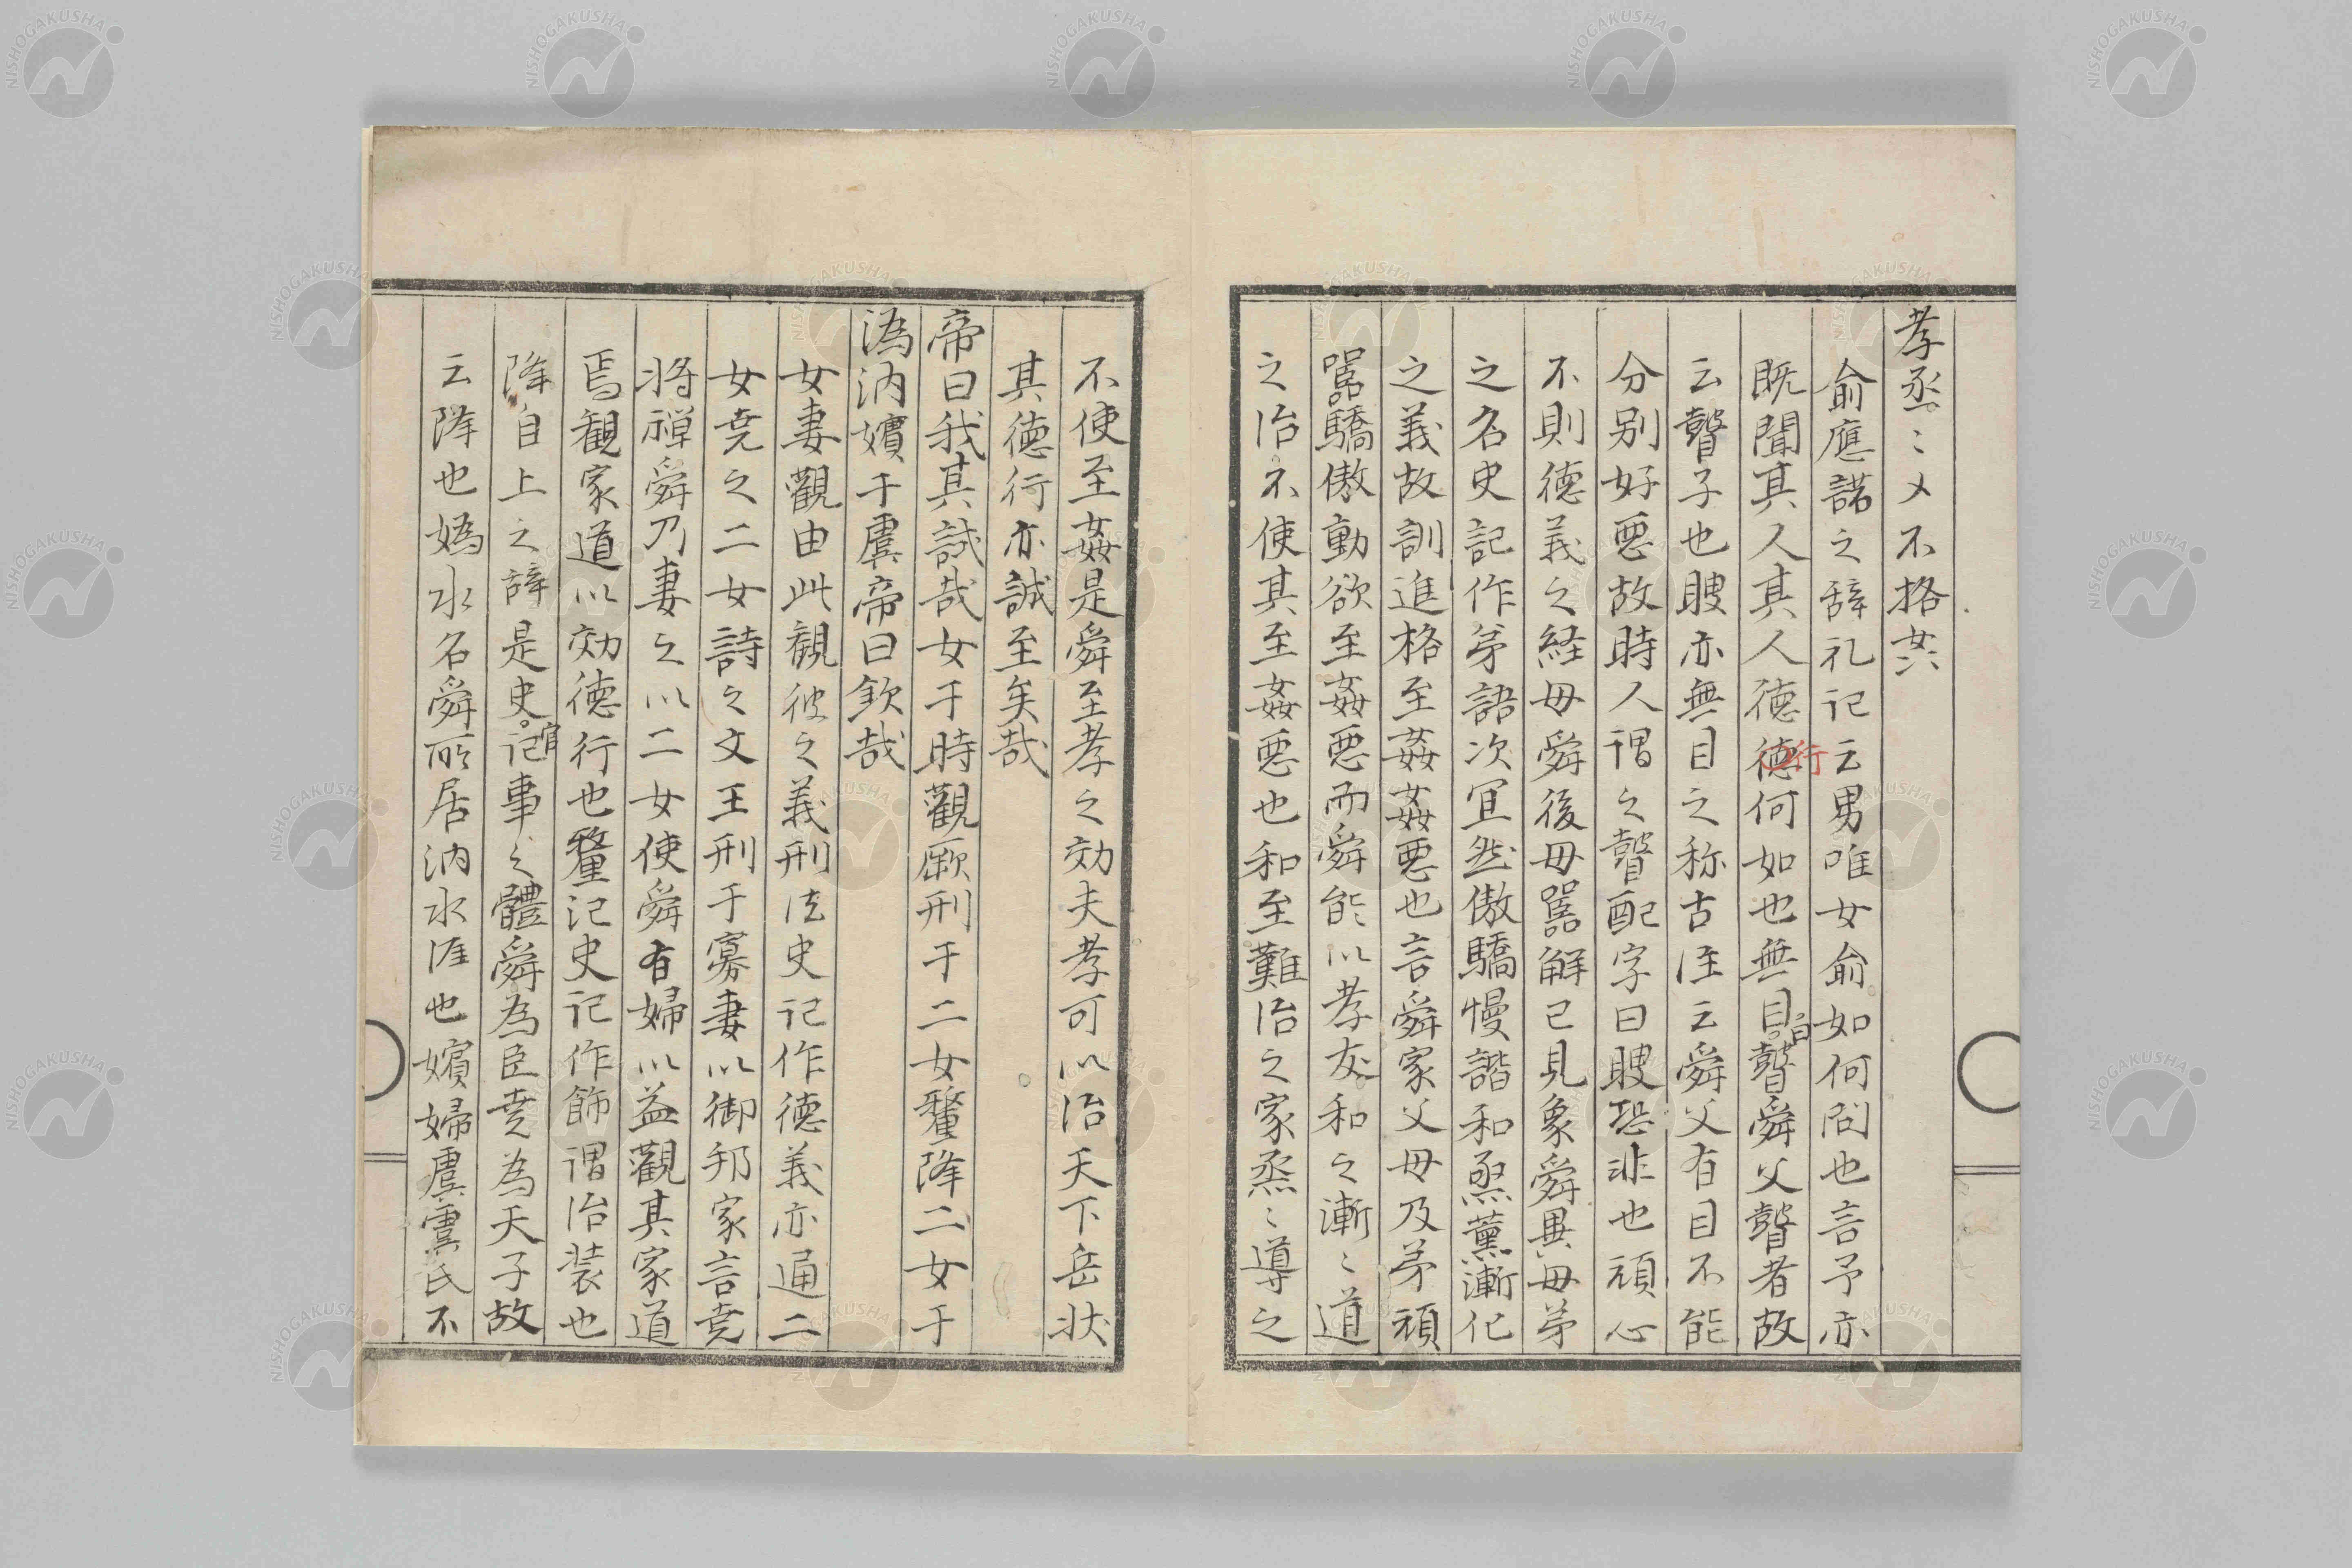 孝烝〻乂不格姦
俞應諾之辞礼记云男唯女俞如何问也言予亦
既聞其人其人德德行何如也無目曰瞽舜父瞽者故
云瞽子也瞍亦無目之称古注云舜父有目不能
分别好悪故時人谓之瞽配字曰瞍恐非也頑心
不則徳義之経母舜後母嚚解已見象舜異母弟
之名史記作弟語次宜然傲驕慢諧和烝薰漸化
之義故訓進格至姦姦悪也言舜家父母及弟頑
嚚驕傲動欲至姦悪而舜能以孝友和之漸〻道
之治不使其至姦悪也和至難治之家烝〻導之
不使至姦是舜至孝之効夫孝可以治天下岳状
其徳行亦誠至矣哉
帝曰我其試哉女于時觀厥刑于二女釐降二女于
溈汭嬪于虞帝曰欽哉
女妻觀由此観彼之義刑法史记作徳義亦通二
女尭之二女詩之文王刑于寡妻以御邦家言尭
将禅舜乃妻之以二女使舜有婦以益觀其家道
焉観家道以効徳行也釐记史记作飾谓治装也
降自上之辞是史官记事之體舜為臣尭為天子故
云降也嬀水名舜所居汭水涯也嬪婦虞虞氏不
NISHOGAKUSHA